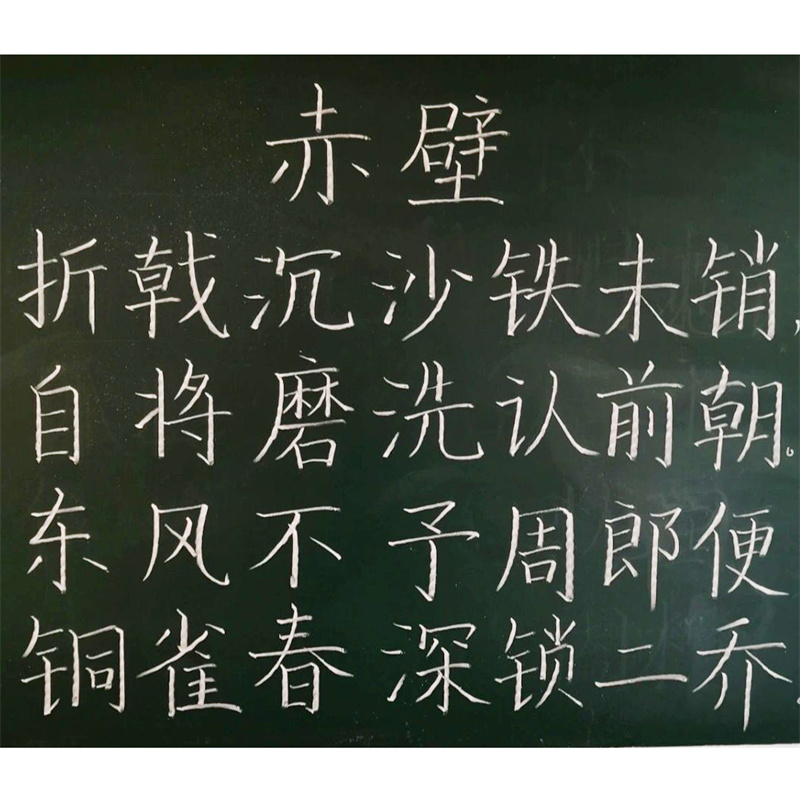 赤壁
折戟沉沙铁未销,
自将磨洗认前朝。
东风不予周郎便
铜雀春深锁二乔.